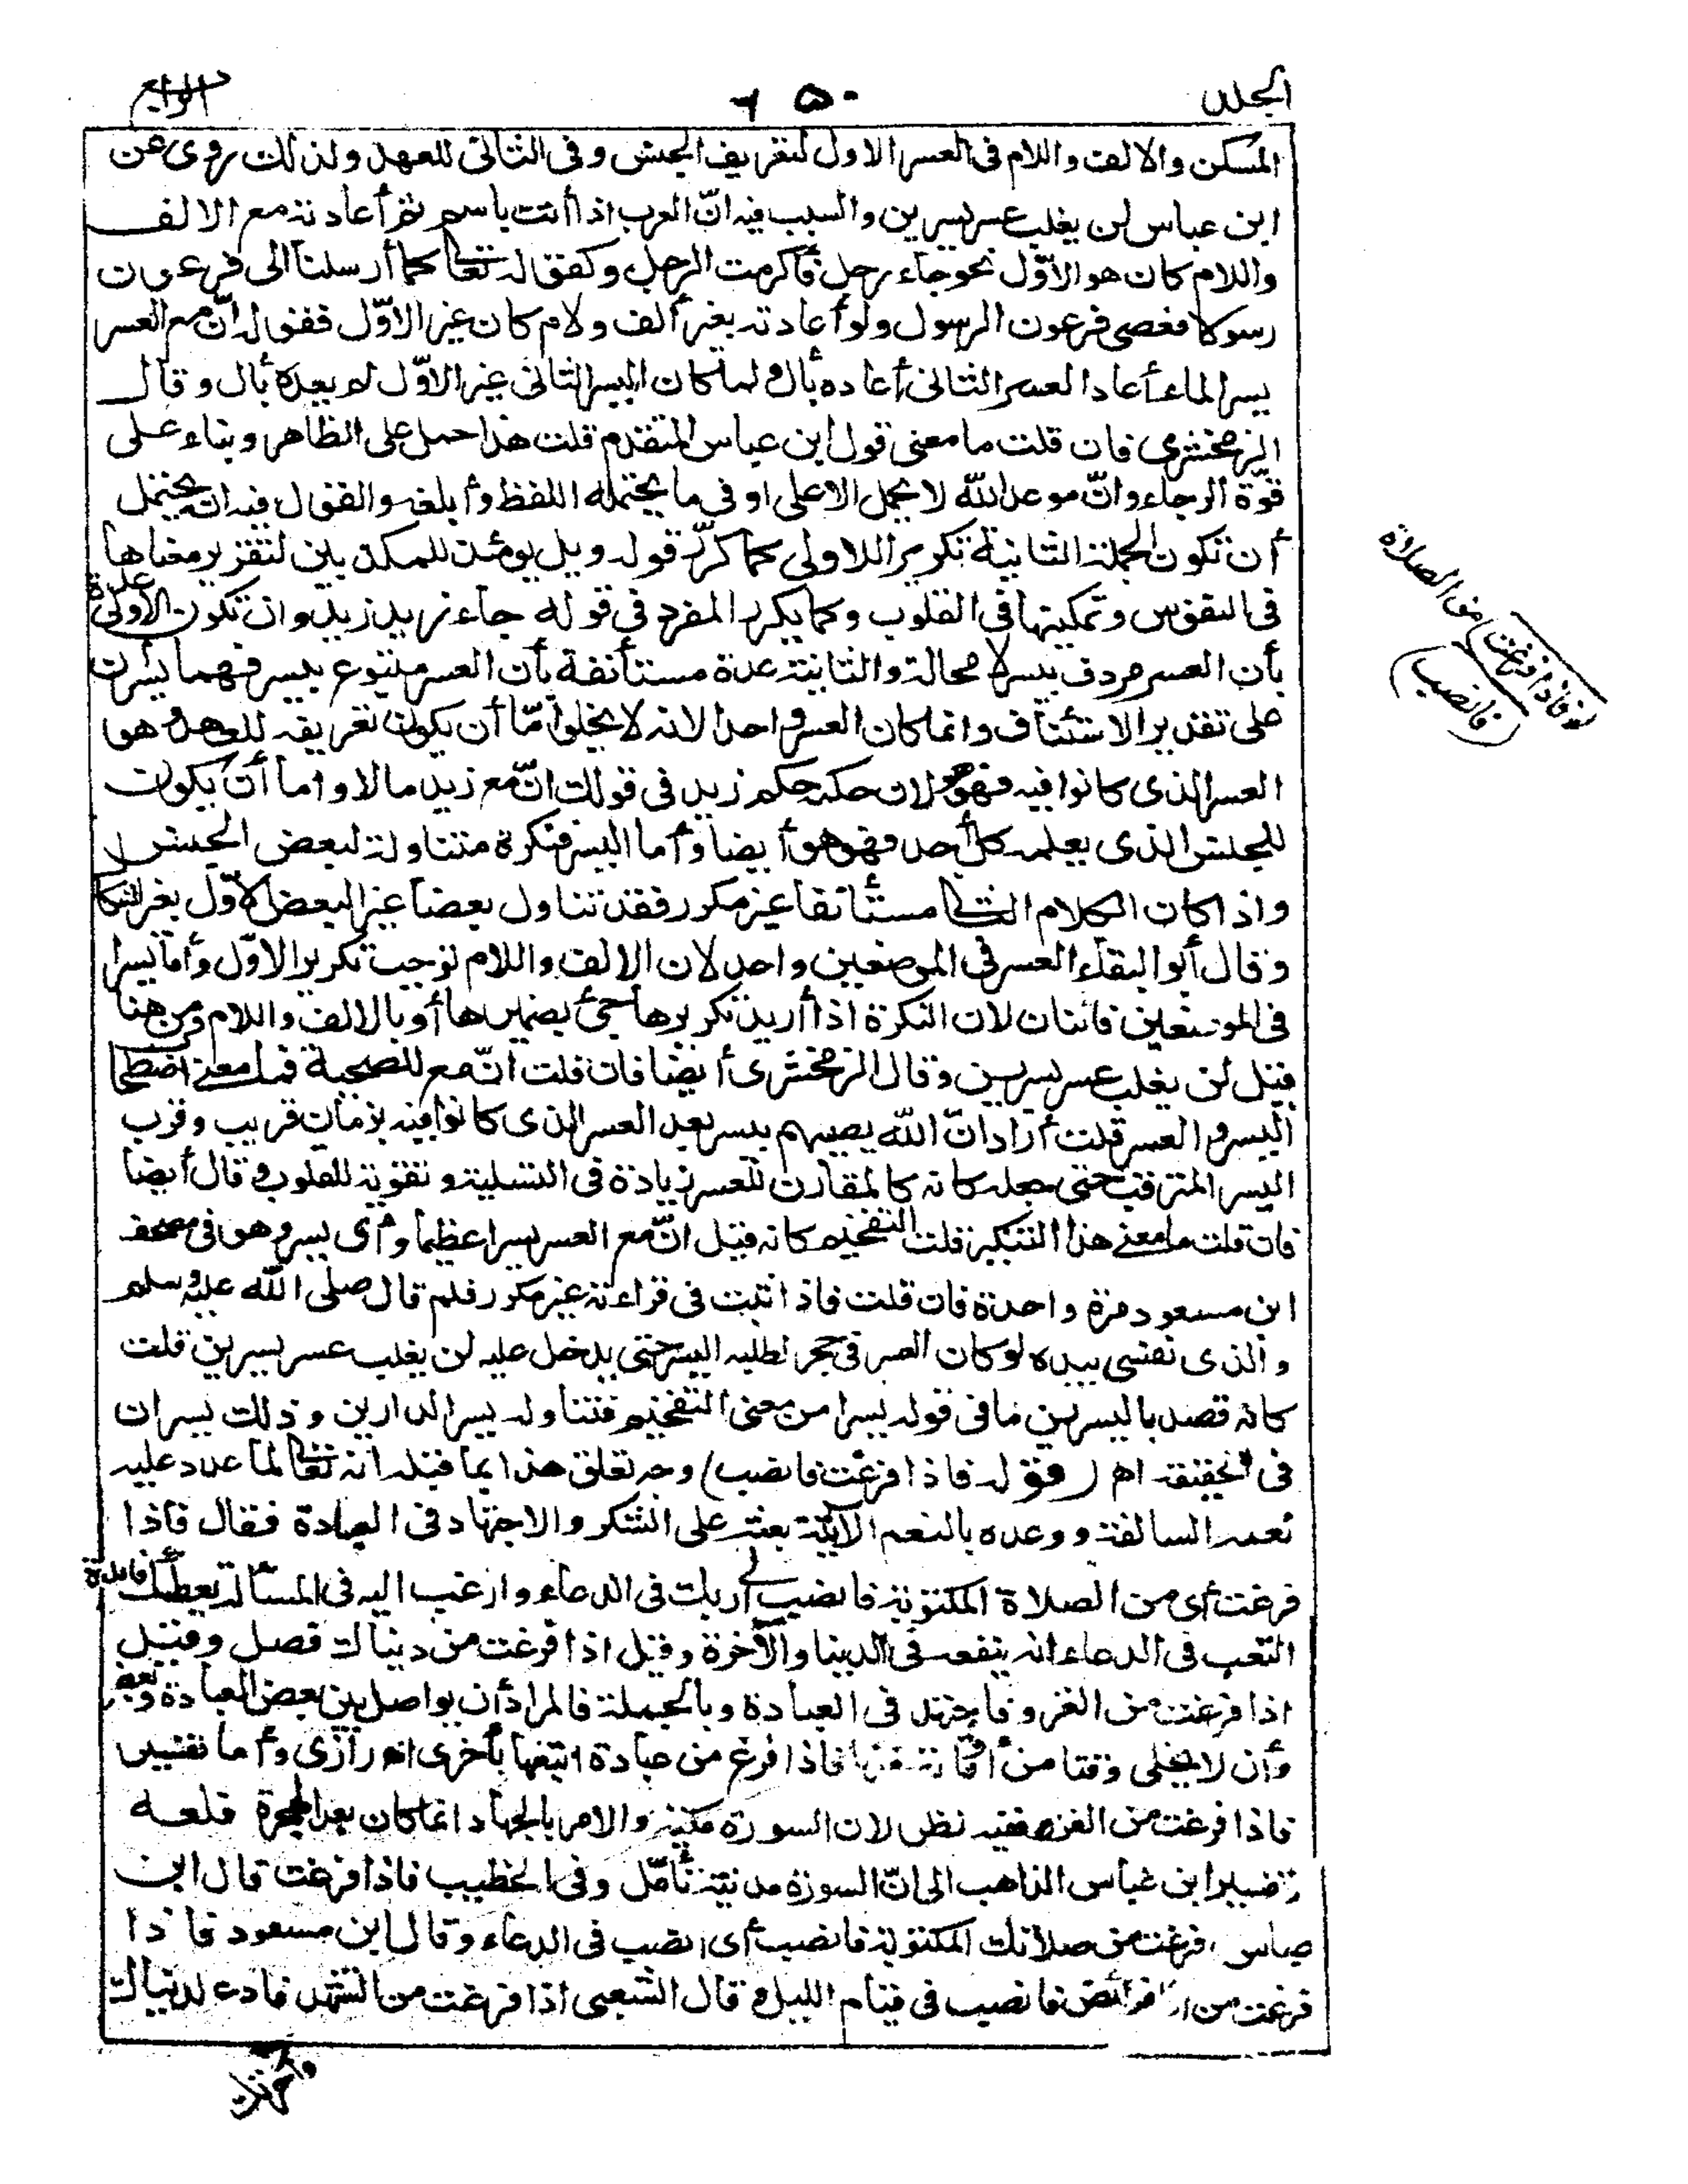 الجلد ٦٥٠ الرابع
المسكن والالف واللام فى العسر الاول لتعريف الجنس وفى الثانى للعهد ولذلك روى عن
ابن عباس لن يغلب عسر يسرين والسبب فيه انّ العرب اذا أتت باسم ثم أعادته مع الالف
واللام كان هو الاوّل نحو جاء رجل فأكرمت الرجل وكقوله تعالى كما أرسلنا الى فرعون
رسولا فعصى فرعون الرسول ولو أعادته بغير ألف ولام كان غير الاوّل فقوله انّ مع العسر
يسرا لما أعاد العسر الثانى أعاده بأل ولما كان اليسر الثانى غير الاوّل لم يعده بأل وقال
الزمخشرى فان قلت ما معنى قول ابن عباس المتقدم قلت هذا حمل على الظاهر وبناء على
قوّة الرجاء وانّ موعد الله لا يحمل الا على اوفى ما يحتمله اللفظ وأبلغه والقول فيه ان يحتمل
أن تكون الجملة الثانية تكريرا للاولى كما كرّر قوله ويل يومئذ للمكذبين لتقرير معناها
فى النفوس وتمكينها فى القلوب وكما يكرر المفرد فى قوله جاء زيد زيد وان تكون الاولى عدة
بأن العسر مردف بيسر لا محالة والثانية عدة مستأنفة بأن العسر متبوع بيسر فهما يسران
على تقدير الاستئناف وانما كان العسر واحدا لانه لا يخلو امّا أن يكون تعريفه للعهد وهو
العسر الذى كانوا فيه فهو هو لان حكمه حكم زيد فى قولك انّ مع زيد مالا واما أن يكون
للجنس الذى يعلمه كل أحد فهو هو أيضا وأما اليسر فنكرة متناولة لبعض الجنس
واذا كان الكلام الثانى مستأنفا غير مكرر فقد تناول بعضا غير البعض الاوّل بغير اشكال
وقال أبو البقاء العسر فى الموضعين واحد لان الالف واللام توجب تكرير الاوّل وأما يسرا
فى الموضعين فاثنان لان النكرة اذا أريد تكريرها جئ بضميرها أو بالالف واللام ومن هنا
قيل لن يغلب عسر يسرين وقال الزمخشرى أيضا فان قلت انّ مع للصحبة فما معنى اصطحاب
اليسر والعسر قلت أراد انّ الله يصيبهم بيسر بعد العسر الذى كانوا فيه بزمان قريب وقرب
اليسر المترقب حتى جعله كانه كالمقارن للعسر زيادة فى التسلية وتقوية للقلوب وقال أيضا
فان قلت ما معنى هذا التنكير قلت التفخيم كانه قيل انّ مع العسر يسرا عظيما وأى يسر وهو فى مصحف
ابن مسعود مرة واحدة فان قلت فاذا ثبت فى قراءته غير مكرر فلم قال صلى الله عليه وسلم
والذى نفسى بيده لو كان العسر فى جحر لطلبه اليسر حتى يدخل عليه لن يغلب عسر يسرين قلت
كانه قصد باليسرين ما فى قوله يسرا من معنى التفخيم فتناوله يسر الدارين وذلك يسران
فى الحقيقة اهـ (قوله فاذا فرغت فانصب) وجه تعلق هذا بما قبله انه تعالى لما عدد عليه
نعمه السالفة ووعده بالنعم الآتية بعثه على الشكر والاجتهاد فى العبادة فقال فاذا
فرغت أى من الصلاة المكتوبة فانصب الى ربك فى الدعاء وارغب اليه فى المسألة يعطك فائدة
التعب فى الدعاء انه ينفعه فى الدنيا والآخرة وقيل اذا فرغت من دنياك فصل وقيل
اذا فرغت من الغزو فاجتهد فى العبادة وبالجملة فالمراد أن يواصل بين بعض العبادة وبعض
وأن لا يخلى وقتا من أوقاته منها فاذا فرغ من عبادة اتبعها بأخرى اهـ رازى وأما تفسير
فاذا فرغت من الغزو ففيه نظر لان السورة مكية والامر بالجهاد انما كان بعد الهجرة فلعله
تفسير ابن عباس الذاهب الى انّ السورة مدنية تأمّل وفى الخطيب فاذا فرغت قال ابن
عباس فرغت من صلاتك المكتوبة فانصب أى انصب فى الدعاء وقال ابن مسعود فاذا
فرغت من الفرائض فانصب فى قيام الليل وقال الشعبى اذا فرغت من التشهد فادع لدنياك
(فاذا فرغت) من الصلاة
(فانصب)